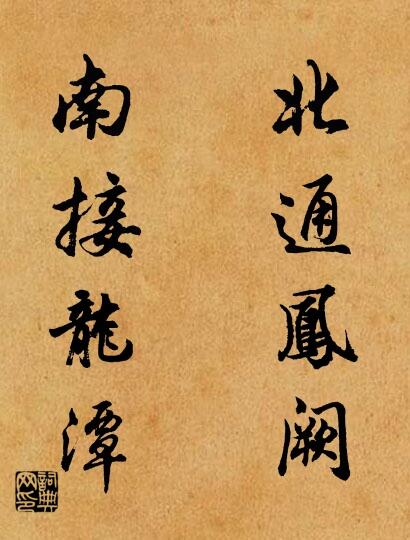 北通鳳闕
南接龍潭
詞典网印